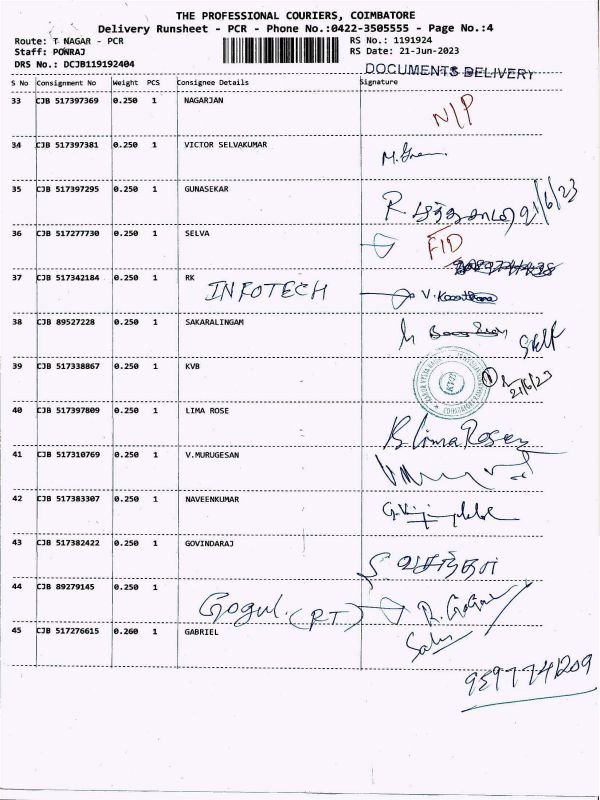 THE PROFESSIONAL COURIERS, COIMBATORE
Delivery Runsheet - PCR - Phone No.:0422-3505555 - Page No.:4
Route: T NAGAR - PCR RS No.: 1191924
Staff: PONRAJ RS Date: 21-Jun-2023
DRS No.: DCJB119192404 DOCUMENTS DELIVERY
S No Consignment No Weight PCS Consignee Details Signature
33 CJB 517397369 0.250 1 NAGARJAN N/P
34 CJB 517397381 0.250 1 VICTOR SELVAKUMAR
35 CJB 517397295 0.250 1 GUNASEKAR 21/6/23
36 CJB 517277730 0.250 1 SELVA
37 CJB 517342184 0.250 1 RK
INFOTECH
38 CJB 89527228 0.250 1 SAKARALINGAM Self
39 CJB 517338867 0.250 1 KVB 21/6/23
40 CJB 517397809 0.250 1 LIMA ROSE B Lima Rosey
41 CJB 517310769 0.250 1 V.MURUGESAN
42 CJB 517383307 0.250 1 NAVEENKUMAR
43 CJB 517382422 0.250 1 GOVINDARAJ
44 CJB 89279145 0.250 1
Gogul. (RT)
45 CJB 517276615 0.260 1 GABRIEL